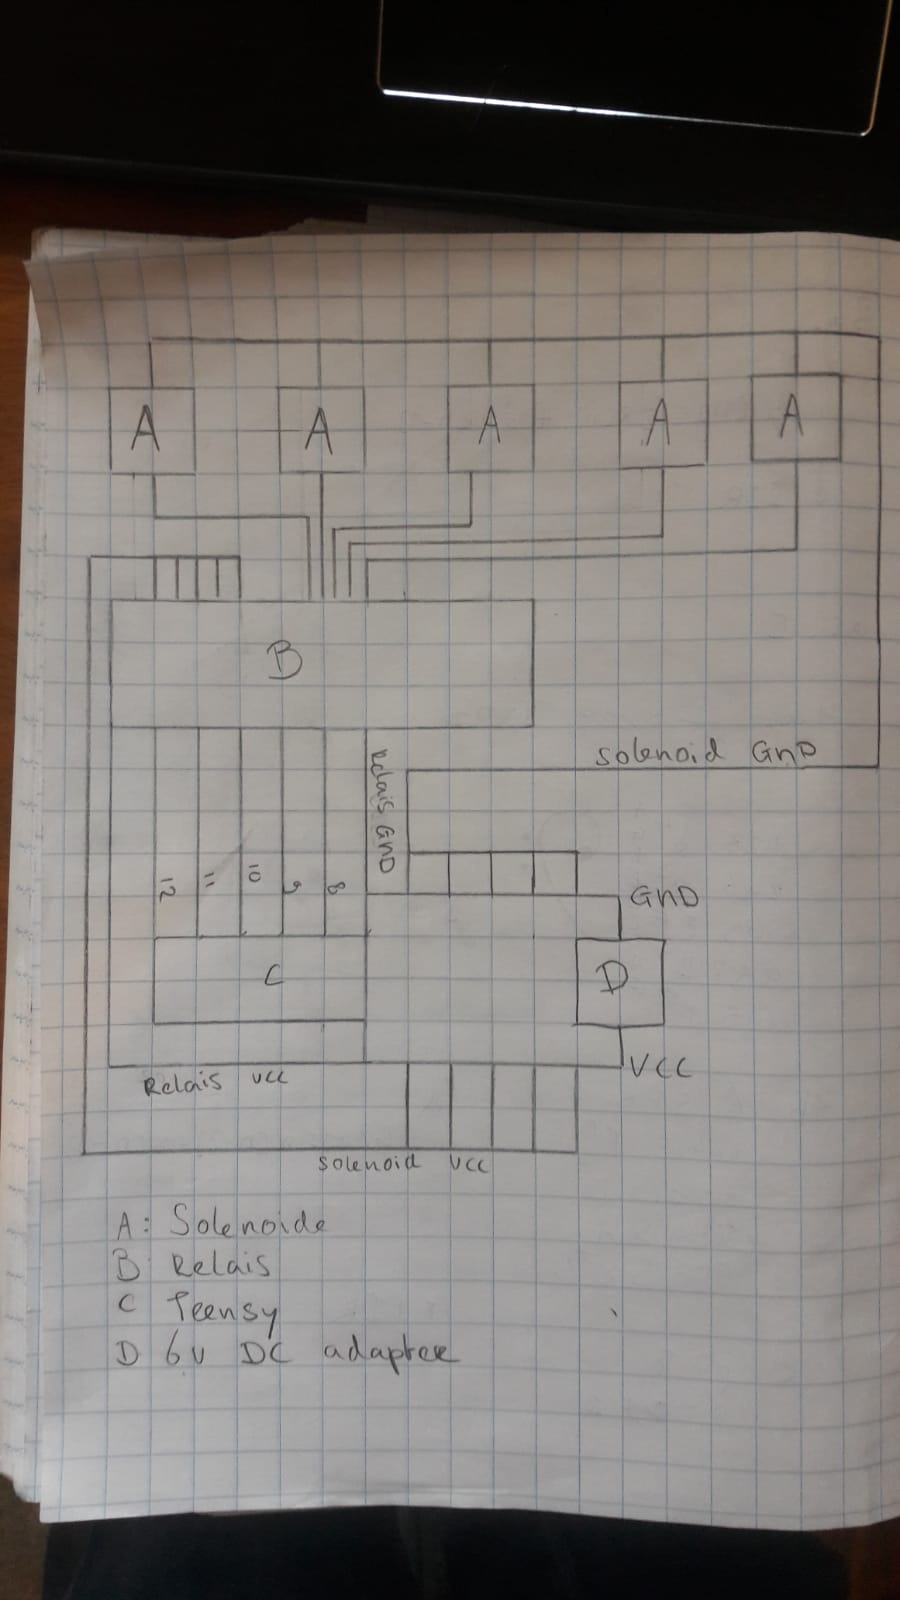 A A A A A
B
Solenoid GND
Relais GND
12 11 10 9 8
GND
C
D
VCC
Relais vcc
Solenoid vcc
A: Solenoide
B Relais
C Teensy
D 6v DC adapter